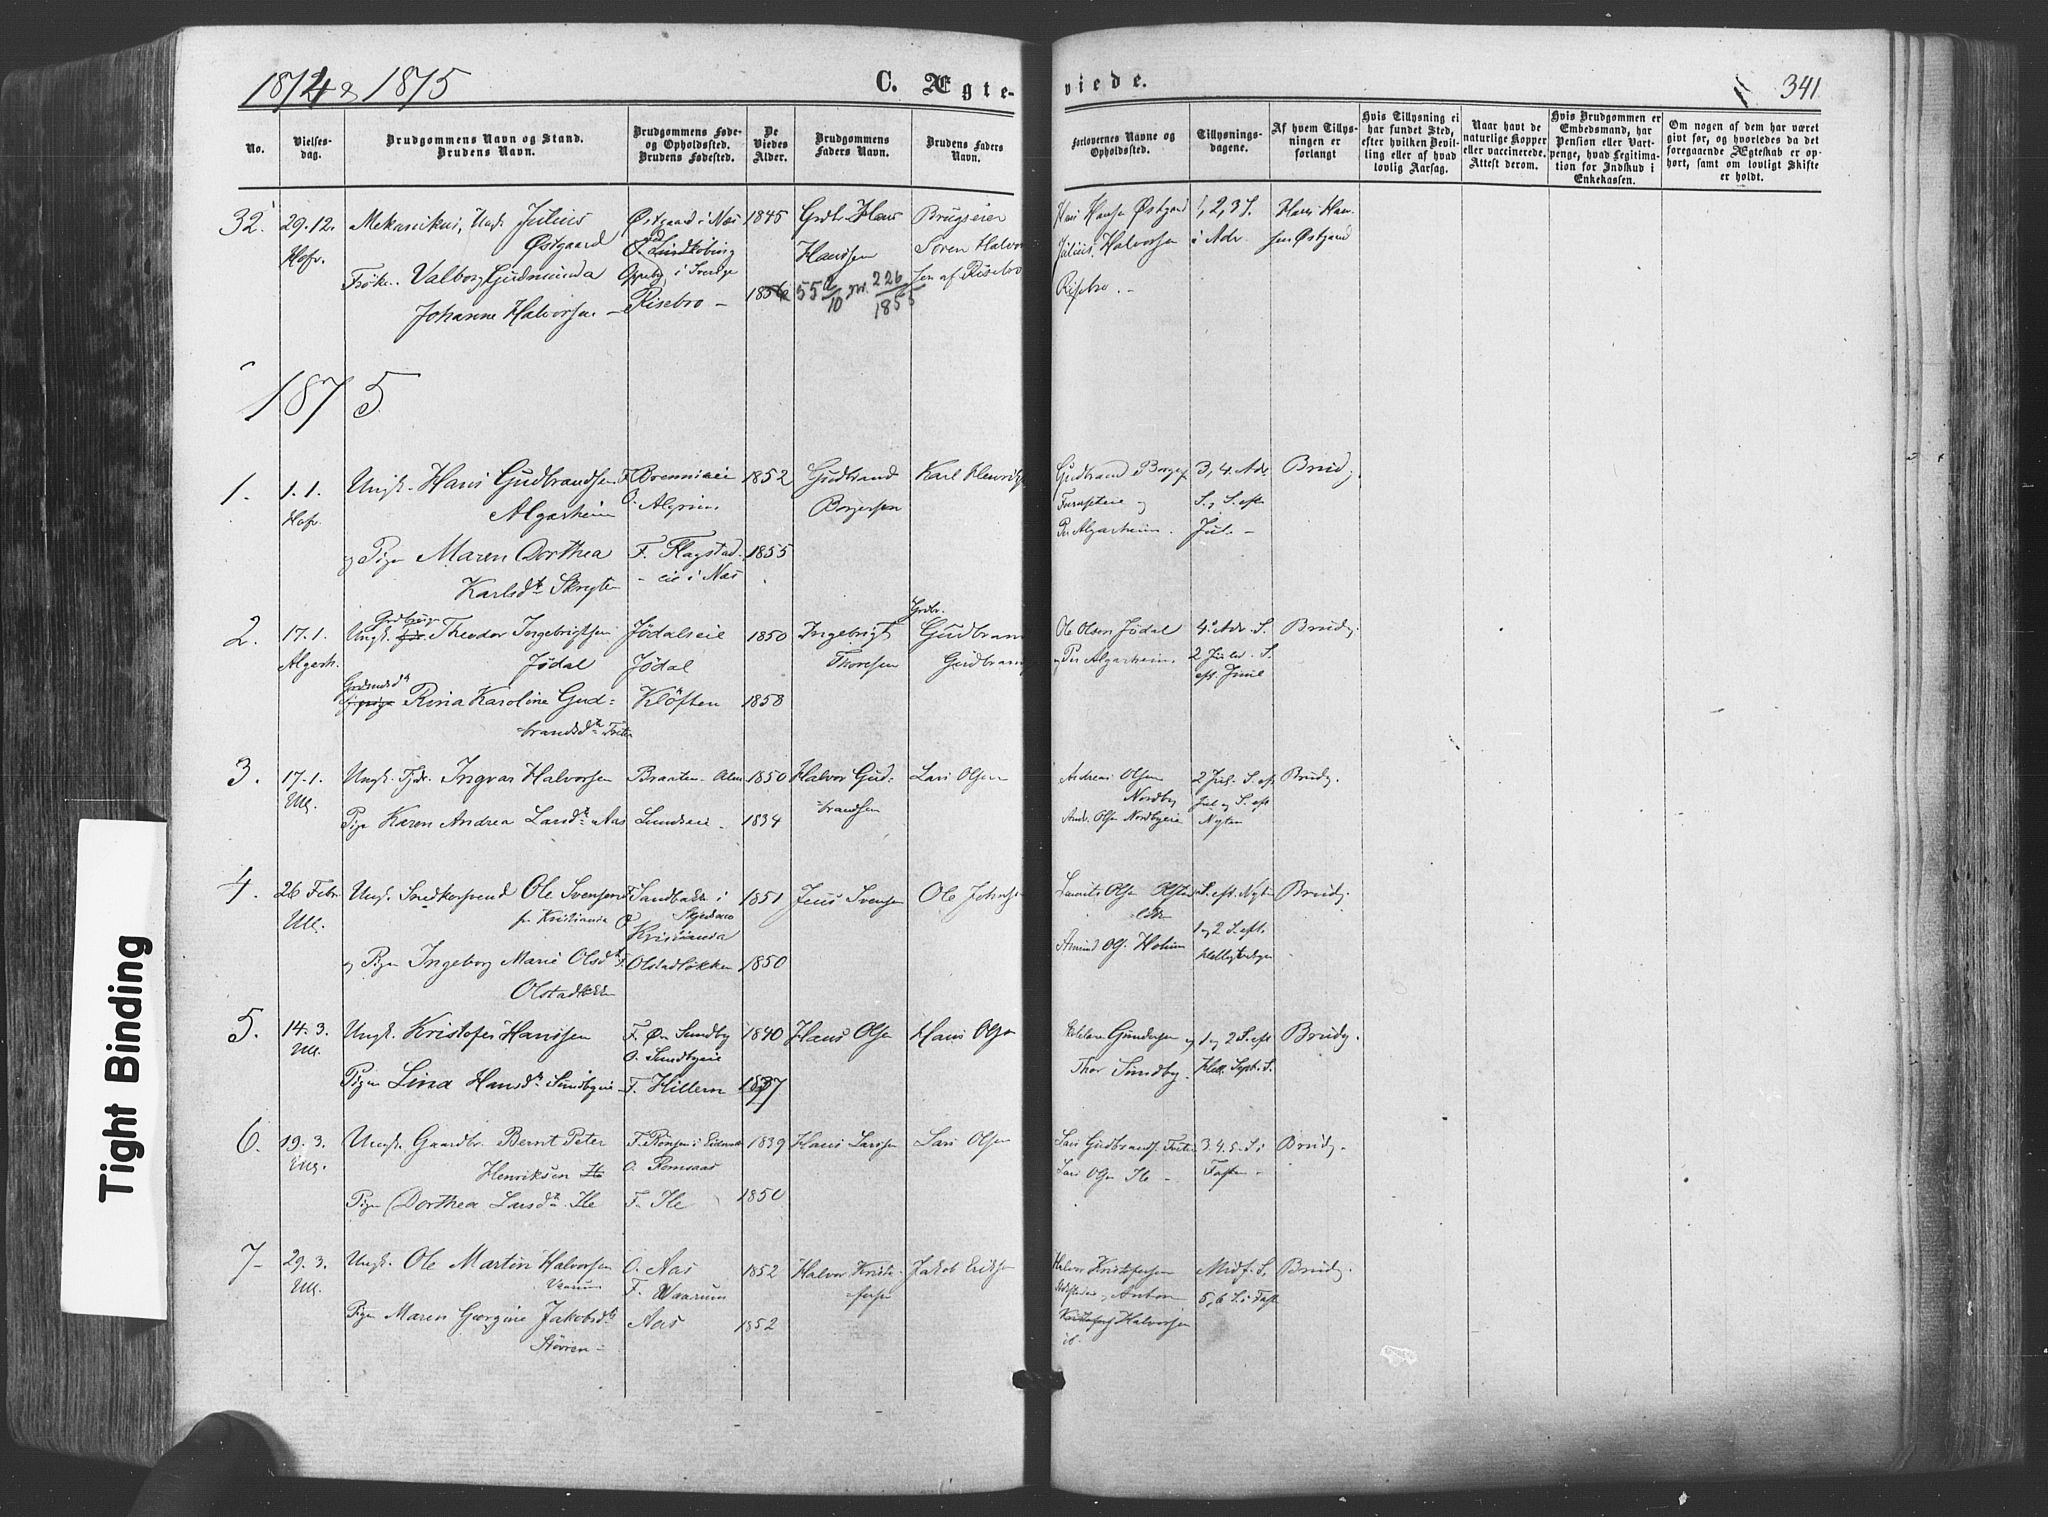 1874 & 1875
C. Ægte-
viede.
341
No.
Vielses-
dag.
Brudgommens Navn og Stand.
Brudens Navn.
Brudgommens Føde-
og Opholdssted.
Brudens Fødested.
De
Viedes
Alder.
Brudgommens
Faders Navn.
Brudens Faders
Navn.
Forlovernes Navne og
Opholdssted.
Tillysnings-
dagene.
Af hvem Tillys-
ningen er
forlangt
Hvis Tillysning ei
har fundet Sted,
efter hvilken Bevil-
ling eller af hvad
lovlig Aarsag.
Naar havt de
naturlige Kopper
eller vaccinerede.
Attest derom.
Hvis Brudgommen er
Embedsmand, har
Pension eller Vart-
penge, hvad Legitima-
tion for Indskud i
Enkekassen.
Om nogen af dem har været
gift før, og hvorledes da det
foregaaende Ægteskab er op-
hørt, samt om lovligt Skifte
er holdt.
32.
29.12.
Hofv.
Mekanikus, Ungk. Julius
Østgaard
Frøken Valborg Gudmunda
Johanne Halvorsen
Østgaard i Næs
Linkøbing
i Sverige
Risebro
1845
1856
Grdbr. Hans
Hanssen
226
1855
Brugseier
Søren Halvor
sen af Risebro
Hans Hansen Østgaard
Julius Halvorsen
Risebro.
1, 2, 3 S.
i Adv.
Hans Han-
sen Østgaard
1875
1.
1.1.
Hofv.
Ungk. Hans Gudbrandsen
Algarheim
og Pige Maren Dorthea
Karlsdtr. Skrygten
F. Brennieie
O. Algrim
F. Flagstad-
eie i Næs
1852
1855
Gudbrand
Borgersen
Karl Henriks
Gudbrand Borgers.
og
Per Algarheim.
3, 4. Adv.
S., S. eft.
Jul.
Brudg.
2.
17.1.
Algarh.
Grdbruger
Ungk. Theodor Ingebrigtsen
Jødal
Grdmandsdtr.
Rina Karoline Gud-
brandsdtr. Freten
Jødalseie
Jødal
Kløften
1850
1858
Ingebrigt
Thoresen
Grdbr.
Gudbrand
Gudbrands
Ole Olsen Jødal
og Per Algarheim.
4. Adv. S.
2 Juled. S.
eft. Juul
Brudg.
3.
17.1.
Ull.
Ungk. Tjdr. Ingvar Halvorsen
Pige Karen Andrea Larsdtr. Aas
Braaten
Lundseie
1850
1834
Halvor Gud-
brandsen
Lars Olsen
Andreas Olsen
Nordby
Andr. Olsen Nordbyeie
2 Jul. S. eft
Jul og S. eft
Nytaar
Brudg.
4.
26 Febr.
Ull.
Ungk. Snedkersvend Ole Svensen
fr. Kristiania
og Pige Ingeborg Marie Olsdtr.
Olstadløkken
F. Sandbakken i
O. Kristiania
Olstadløkken
1851
1850
Jens Svensen
Ole Johns
Laurits Olsen Olstad
Amund Ols. Holum
S. eft. Nytaar
1 og 2 S. eft.
Brudg.
5.
14.3.
Ull.
Ungk. Kristofer Hanssen
Pige Lina Hansdtr. Sundbyeie
F. Ør. Sundby
O. Sundbyeie
F. Hillern
1840
Hans Olsen
Hans Olsen
Gundersen og
Thor Sundby.
1 og 2 S. eft
Hell. S.
Brudg.
6.
19.3.
Ull.
Ungk. Gaardbr. Bernt Peter
Henriksen
Pige Dorthea Larsdtr. Ile
F. i Eidsvold
O. Romsaas
F. Ile
1839
1850
Hans Larssen
Lars Olsen
Lars Gudbrands. Freten
Lars Olsen Ile
3. 4. 5. S. i
Faste
Brudg.
7
29.3.
Ull.
Ungk. Ole Martin Halvorsen
Vaarum
Pige Maren Georgine Jakobsdtr.
Støvren
O. Aas
F. Waarum
Aas
1852
1852
Halvor Kristo-
fersen
Jakob Eriksen
Halvor Kristofersen
og Anton
Kristofersen Halvorsen
ib.
Midf. S.
5, 6 S. i Faste
Brudg.
Tight Binding